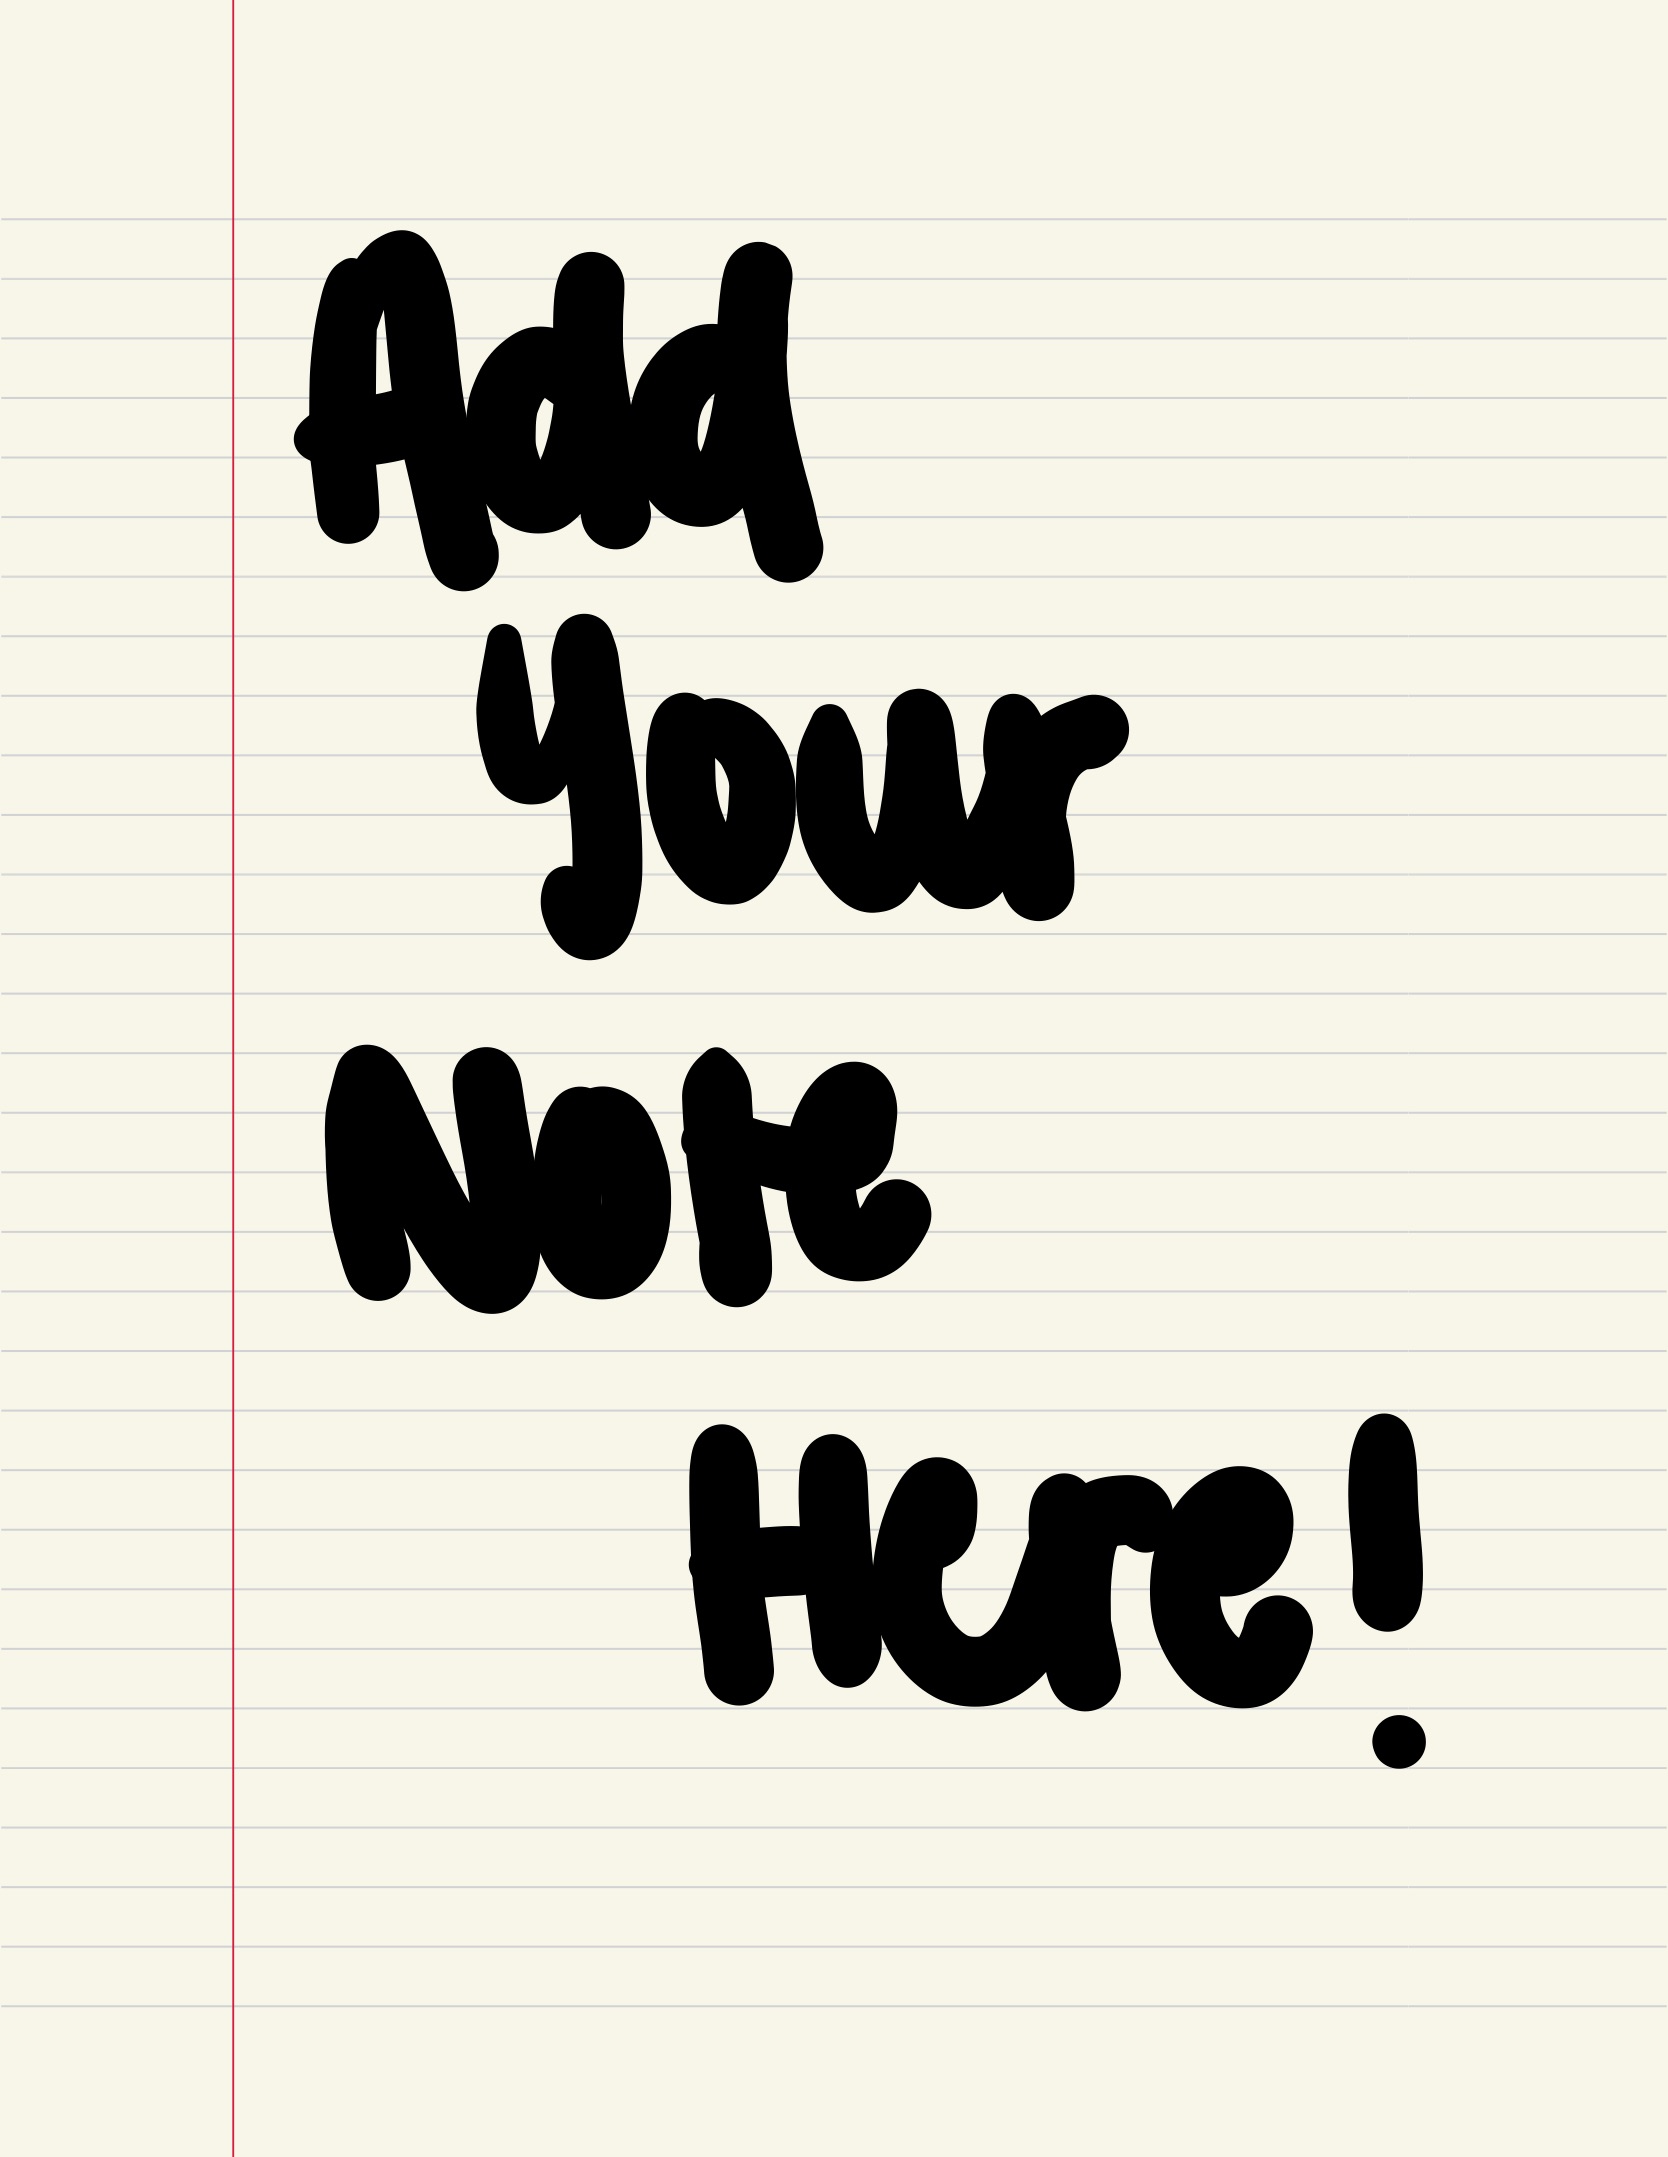 Add
Your
Note
Here!